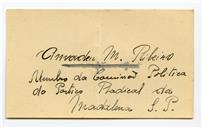 Amadeu M. Ribeiro
Membro da Comissão Politica
do Partido Radical da
Madalena S. P.